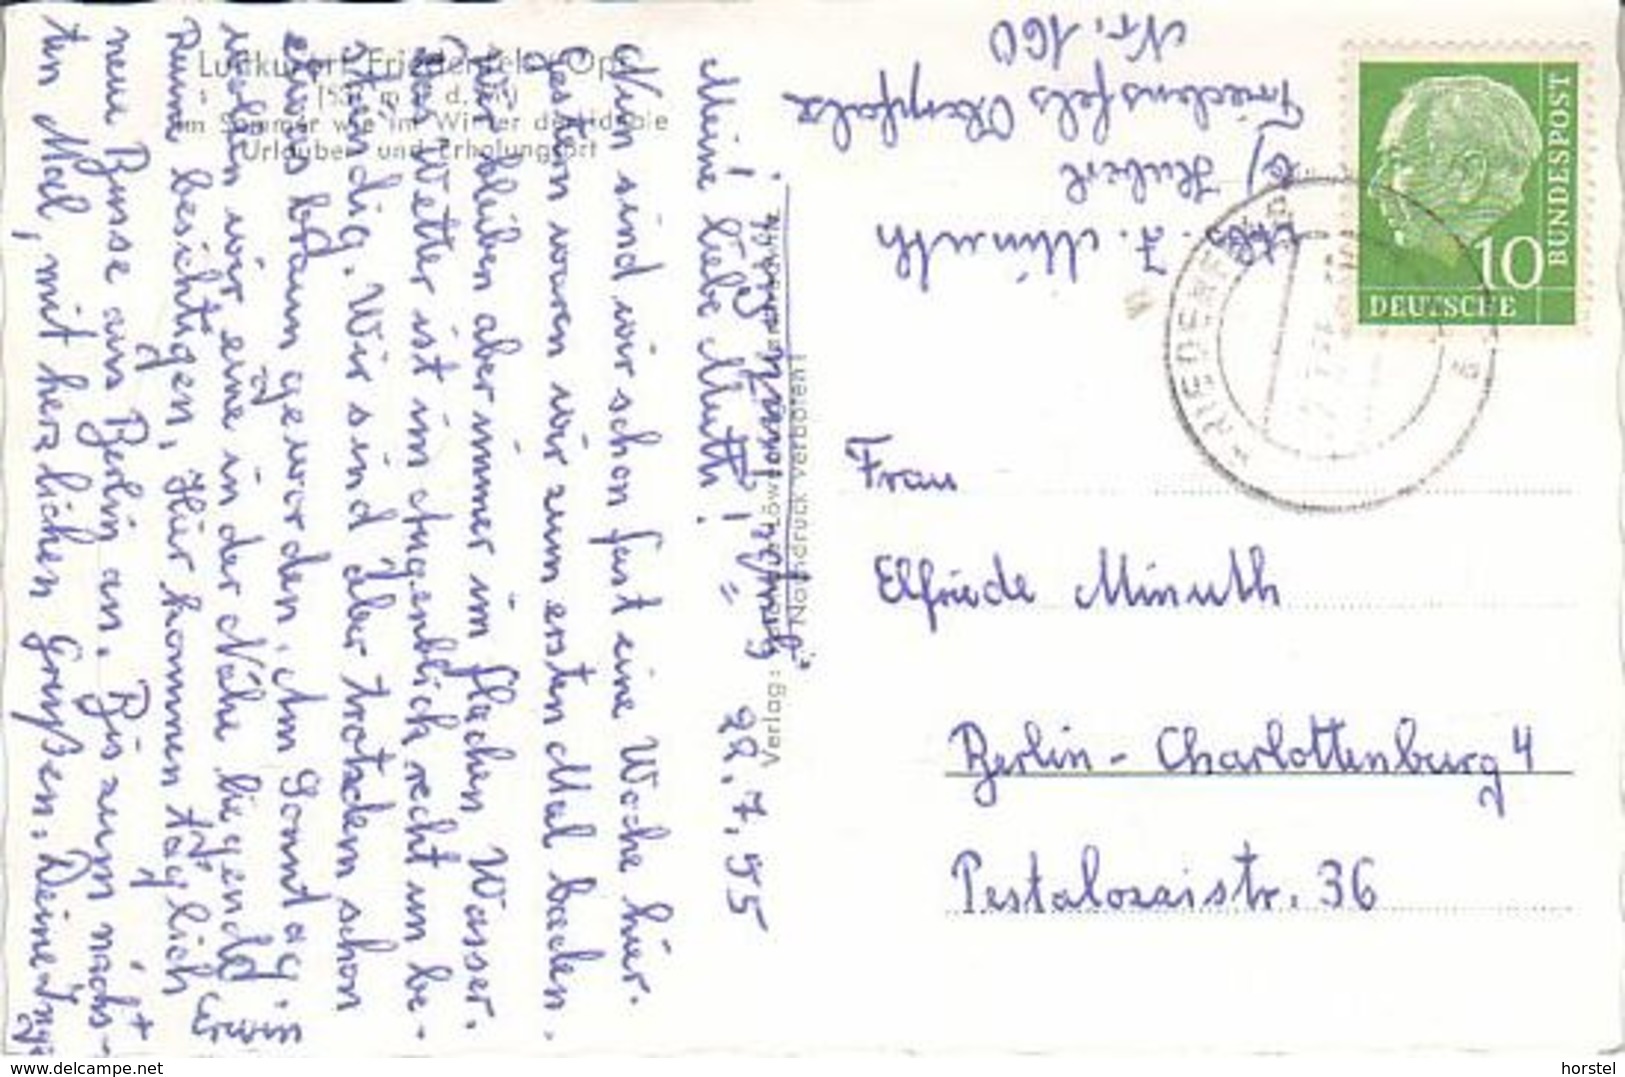 Luftkurort Friedenfels / Opf.
im Sommer wie im Winter der ideale
Urlauber- und Erholungsort
Friedenfels 22. 7. 55
Meine liebe Mutti!
Nun sind wir schon fast eine Woche hier.
Gestern waren wir zum ersten Mal baden.
Wir bleiben aber immer im flachen Wasser.
Das Wetter ist im Augenblick recht unbe-
ständig. Wir sind aber trotzdem schon
etwas braun geworden. Am Sonntag
wollen wir eine in der Nähe liegende
Ruine besichtigen. Hier kommen täglich
neue Busse aus Berlin an. Bis zum nächs-
ten Mal, mit herzlichen Grüßen: Deine Inge
+ Erwin
Verlag:
Nachdruck verboten!
Abs. J. Minuth
b/ Huberl
Friedenfels Oberpfalz
Nr. 160
10
DEUTSCHE
BUNDESPOST
Frau
Elfriede Minuth
Berlin-Charlottenburg 4
Pestalozzistr. 36
horstel
www.delcampe.net